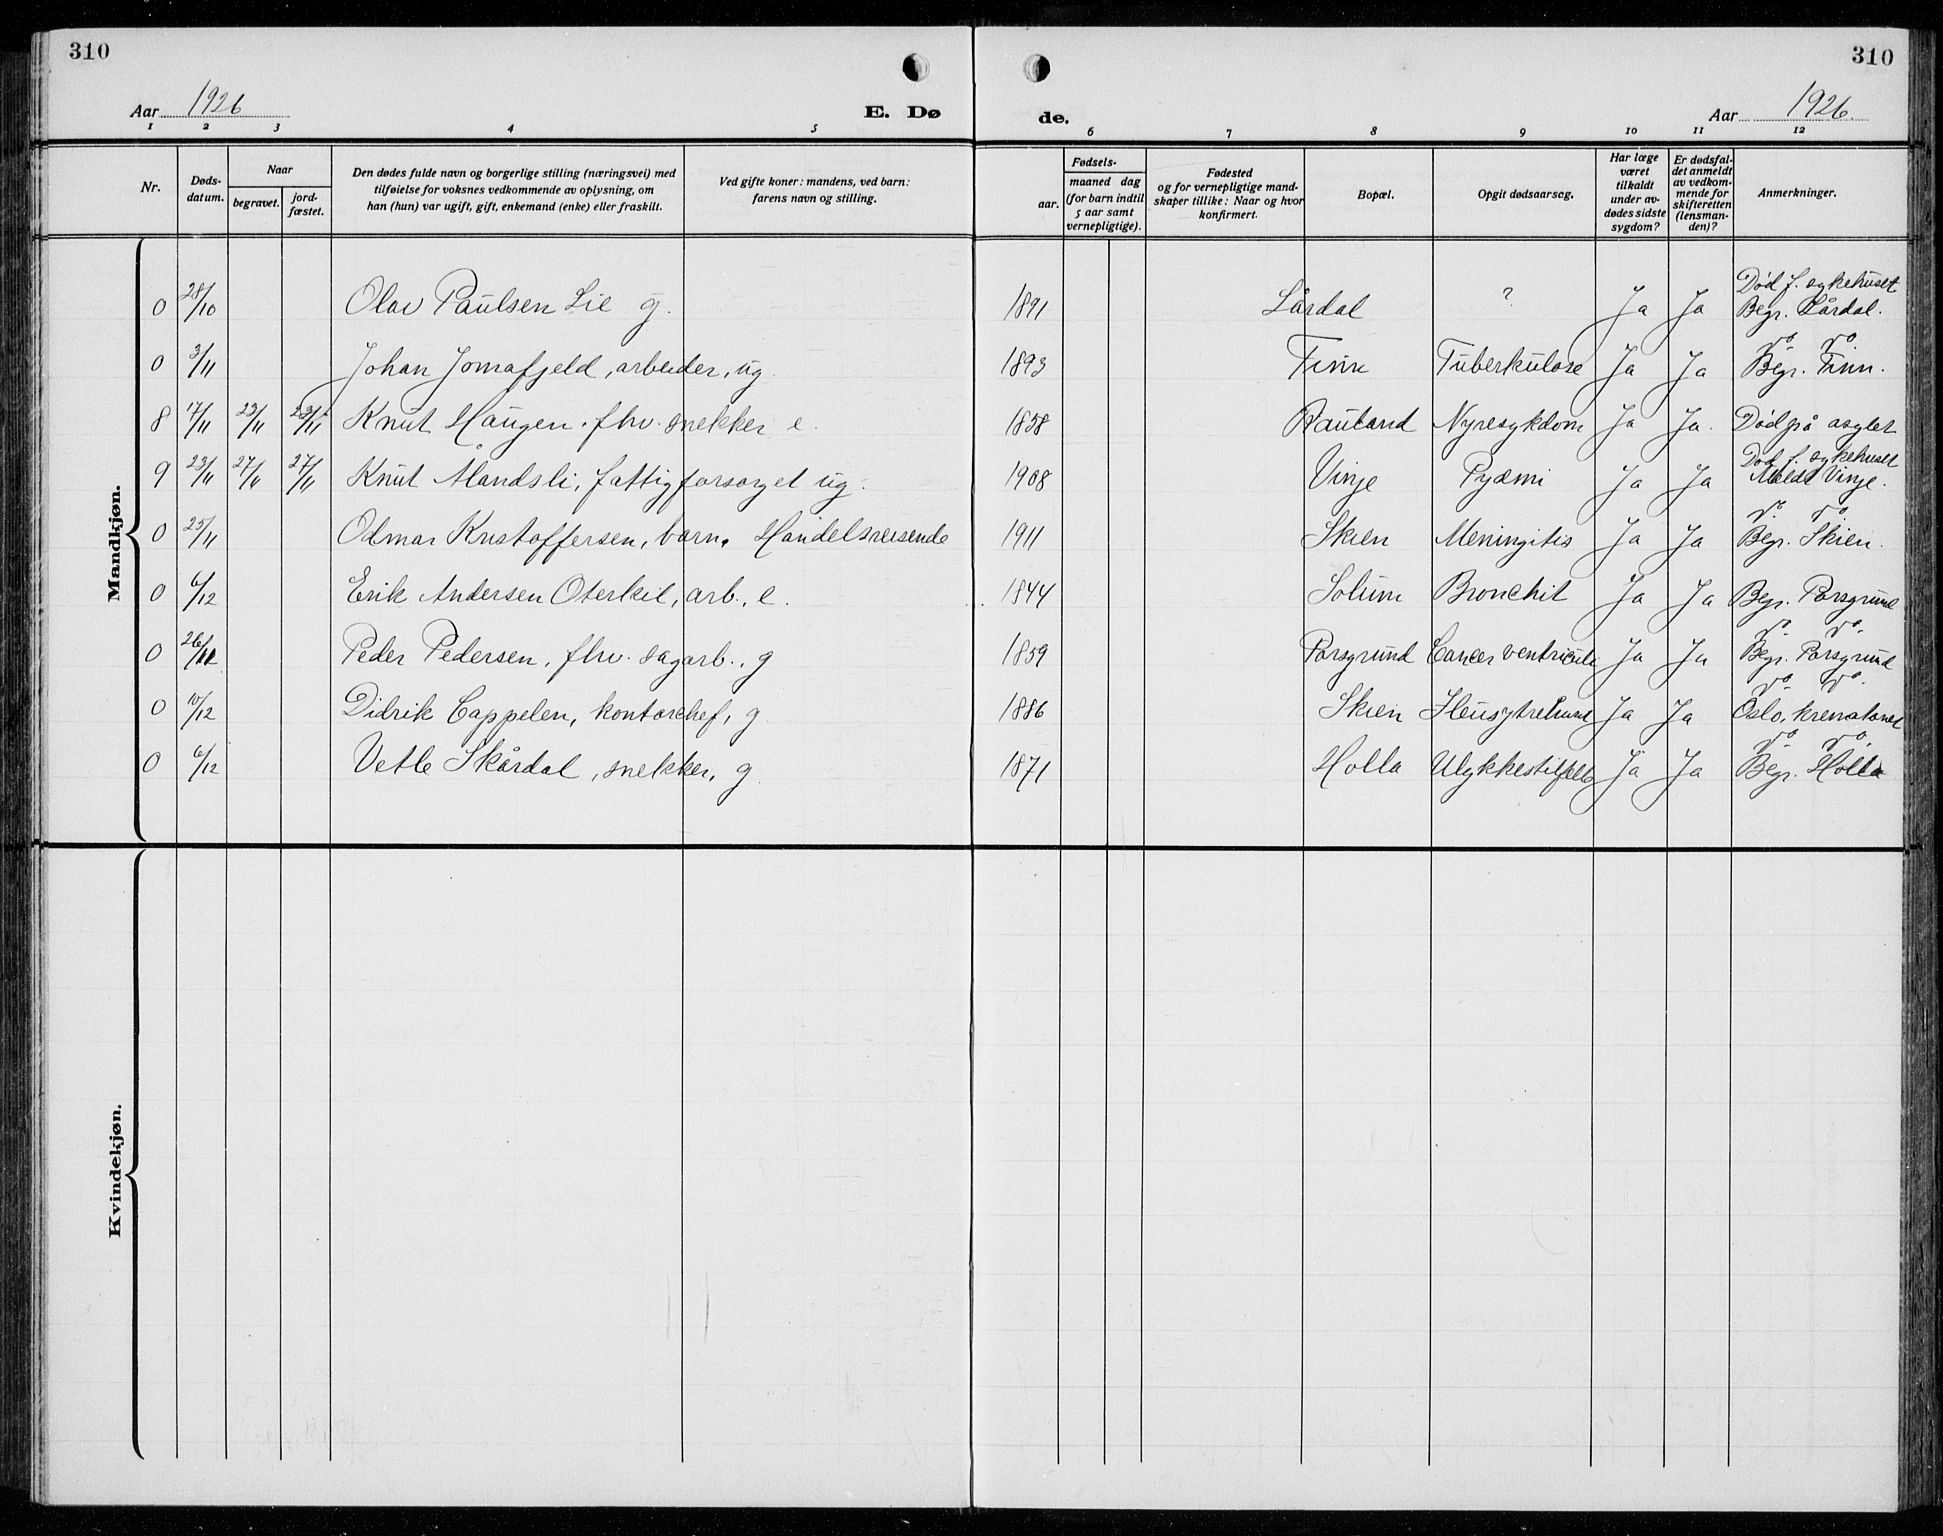 310
310
Aar 1926
E. Dø
de.
Aar 1926.
1 2 3 4 5 6 7 8 9 10 11 12
Nr.
Døds-
datum.
Naar
begravet.
jord-
fæstet.
Den dødes fulde navn og borgerlige stilling (næringsvei) med
tilføielse for voksnes vedkommende av oplysning, om
han (hun) var ugift, gift, enkemand (enke) eller fraskilt.
Ved gifte koner: mandens, ved barn:
farens navn og stilling.
Fødsels-
aar.
maaned dag
(for barn indtil
5 aar samt
vernepligtige).
Fødested
og for vernepligtige mand-
skaper tillike: Naar og hvor
konfirmert.
Bopæl.
Opgit dødsaarsag.
Har læge
været
tilkaldt
under av-
dødes sidste
sygdom?
Er dødsfal-
det anmeldt
av vedkom-
mende for
skifteretten
(lensman-
den)?
Anmerkninger.
Mandkjøn.
0 28/10 Olav Paulsen Lie g. 1891 Lårdal ? Ja Ja Død f. sykehuset
Begr. Lårdal.
0 3/11 Johan Jomafjeld, arbeider, ug. 1893 Finn Tuberkulose Ja Ja do do
Begr. Finn.
8 17/11 23/11 23/11 Knut Haugen. fhv. snekker e. 1838 Rauland Nyresykdom Ja Ja. Død på asylet
9 23/11 27/11 27/11 Knut Mandsli, fattigforsorget ug. 1908 Vinje Pydmi Ja Ja Død f. sykehuset
Meldt Vinje.
0 25/11 Odmar Kristoffersen, barn. Handelsreisende 1911 Skien Meningitis Ja Ja do do.
Begr. Skien.
0 6/12 Erik Andersen Oterkil, arb., e. 1844 Solum Bronchit Ja Ja Begr. Porsgrund
0 26/11 Peder Pedersen, fhv. sagarb., g 1859 Porsgrund Cancer ventriculi Ja Ja do do.
Begr. Porsgrund
0 10/12 Didrik Cappelen, kontorchef, g 1886 Skien Ja Ja do do.
Oslo, krematoriet
0 6/12 Vetle Skårdal, snekker, g 1871 Holla Ulykkestilfelle Ja Ja do do.
Begr. Holla
Kvindekjøn.